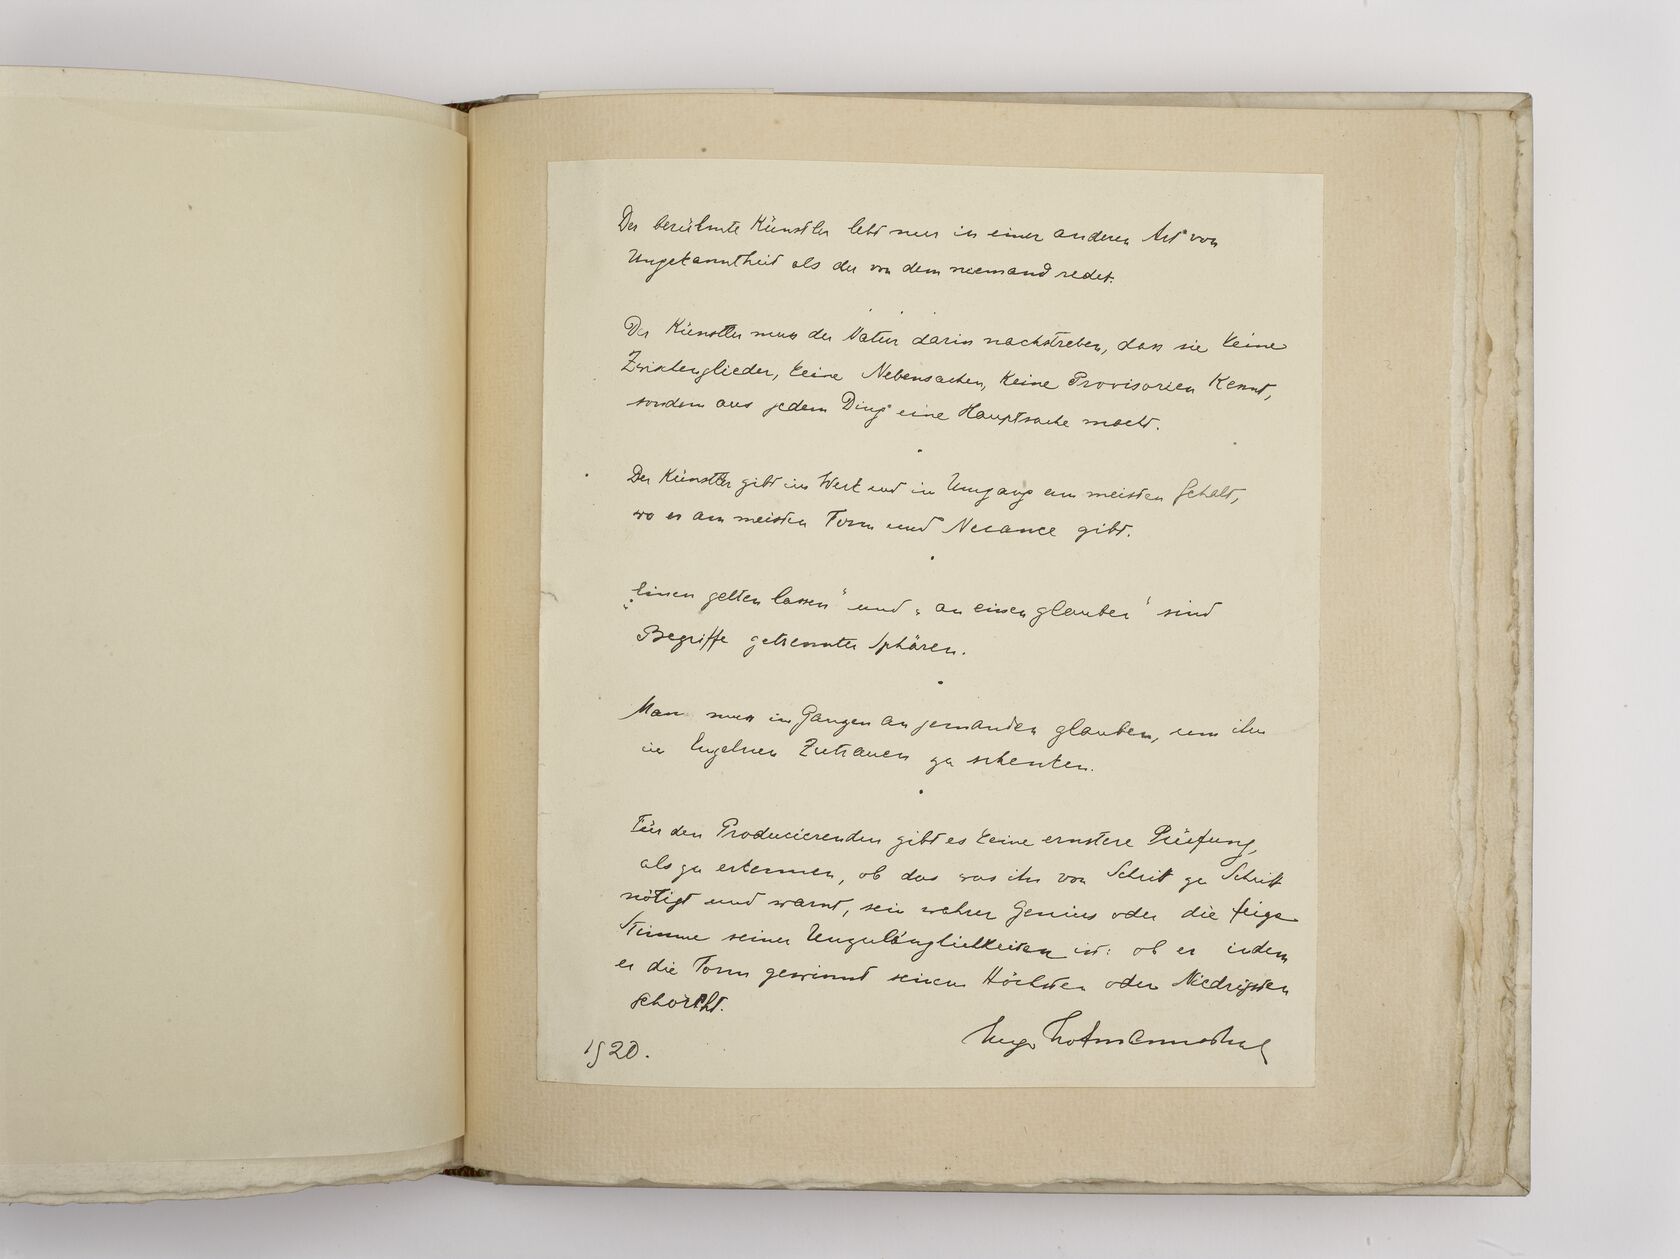 Der berühmte Künstler lebt nur in einer anderen Art von
Ungekanntheit als der von dem niemand redet.
Der Künstler muss der Natur darin nachstreben, dass sie keine
Zwischenglieder, keine Nebensachen, keine Provisorien kennt,
sondern aus jedem Ding eine Hauptsache macht.
Der Künstler gibt im Werk und im Umgang am meisten Gehalt,
wo er am meisten Form und Nuance gibt.
„Einen gelten lassen“ und „an einen glauben“ sind
Begriffe getrennter Sphären.
Man muss im Ganzen an jemanden glauben, um ihm
im Einzelnen Zutrauen zu schenken.
Für den Producierenden gibt es keine ernstere Prüfung,
als zu erkennen, ob das was ihn von Schritt zu Schritt
nötigt und warnt, sein wahrer Genius oder die feige
Stimme seiner Unzulänglichkeiten ist: ob er indem
er die Form gewinnt seinem Höchsten oder Niedrigsten
gehorcht.
Hugo Hofmannsthal
1920.